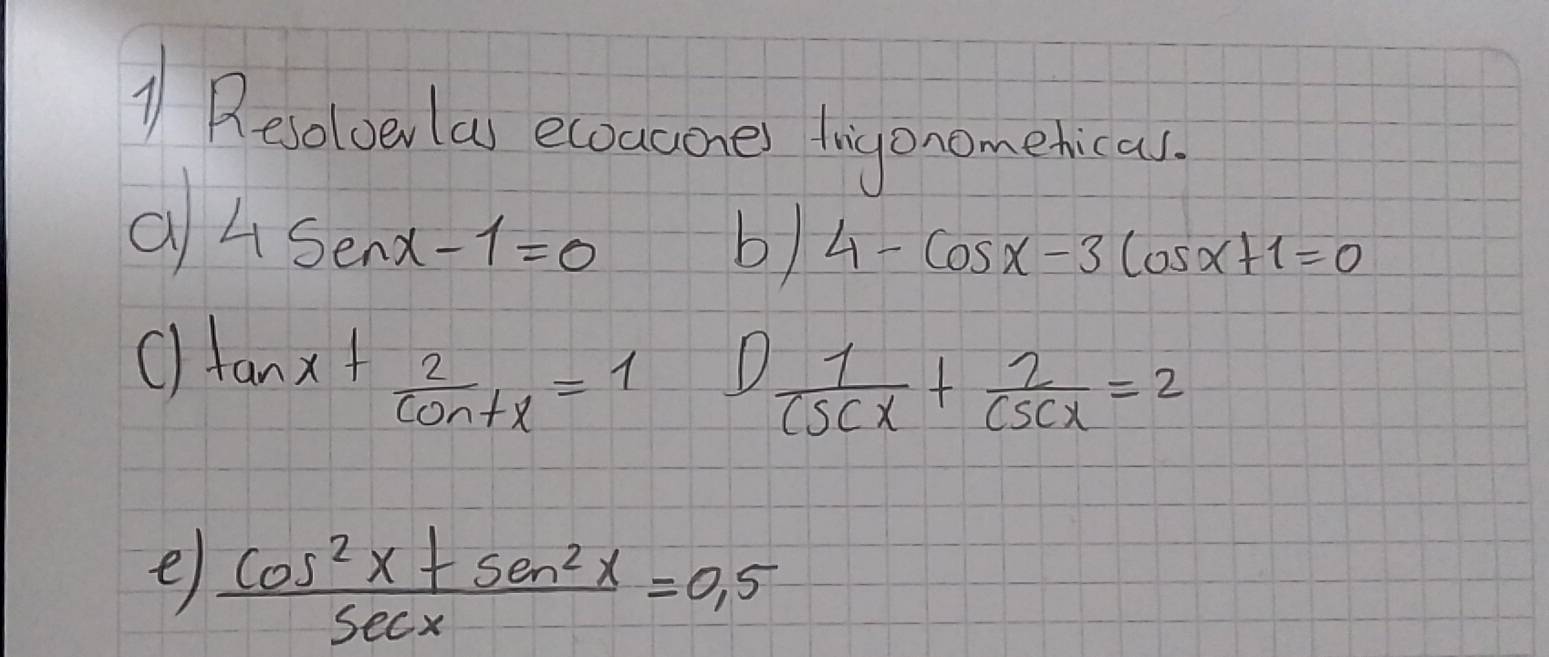 1) Resolver las ecuaciones trigonometricas.
a) 4 Senx - 1 = 0 b) 4 - Cosx - 3 Cosx + 1 = 0
c) tanx + 2/contx = 1 D) 1/cscx + 2/cscx = 2
e) cos²x + sen²x / secx = 0,5